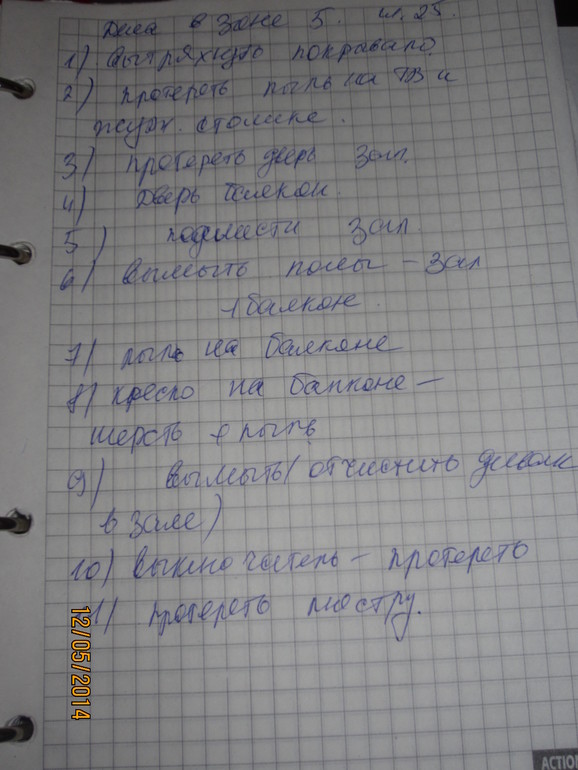 Дела в Зоне 5.
1) Вытряхнуть покравало
2) протереть пыль на ТВ и
журн. столике.
3) протереть дверь зал.
4) Дверь балкон.
5) подмести зал
6) вымыть полы – зал
+ балкон.
7) пыль на балконе
8) кресло на балконе –
шерсть + пыль
9) вымыть/отчистить диван
в зале)
10) выключатель – протереть
11) протереть люстру.
12/05/2014
ACTIO